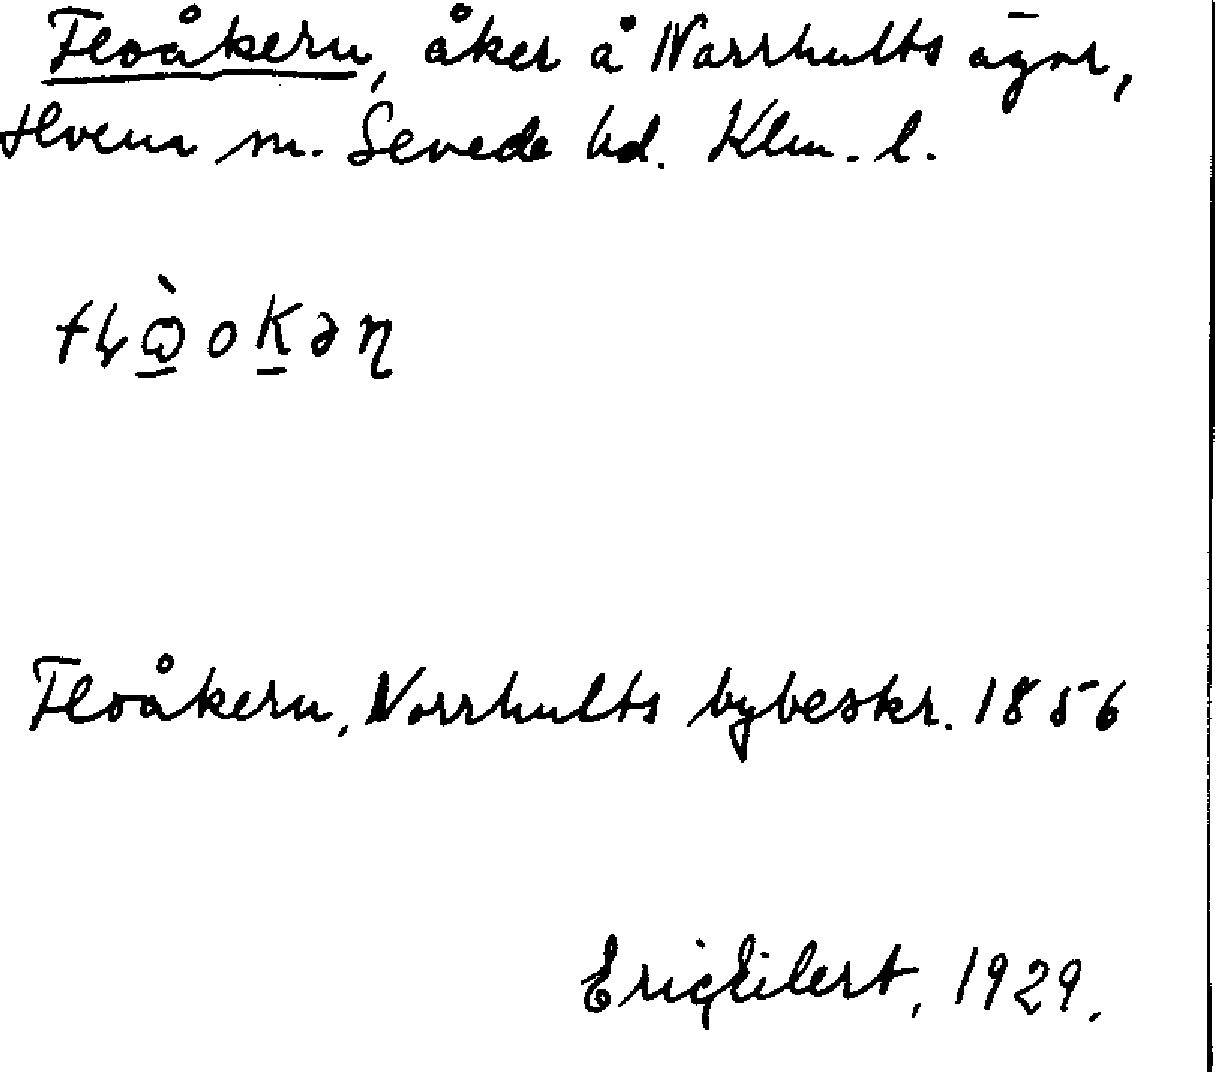 Floåkern, åker å Norrhults ägor,
Hvena sn. Sevede hd. Klm. l.
Floåkern, Norrhults bybeskr. 1856
Eric Eilert, 1929.